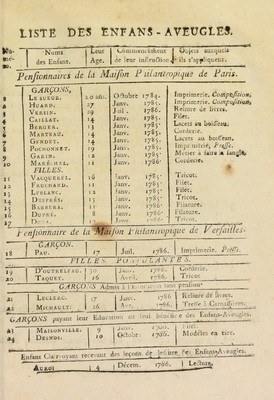 LISTE DES ENFANS-AVEUGLES.
Noms des Enfans. Leur Age. Commencement de leur instruction Objets auxquels ils s'appliquent.
Pensionnaires de la Maison Philantropique de Paris.
GARÇONS,
LE SUEUR. 20 ans. Octobre 1784. Imprimerie, Composition;
HUARD. 27 Janv. 1785. Imprimerie. Composition,
17 Juil. 1786. Relieure de livres.
CAILLAT. 14 Janv. 1785. Filet.
BERGER. 13 Janv. 1785. Lacets au boisseau.
MARTEAU. 14 Janv. 1785. Corderie.
14 Janv. 1785. Lacets au boisseau,
POCHONNET. 17 Janv. 1785. Imprimerie, Presse.
GARIN. 12 Janv. 1785. Métier à faire la sangle,
10 MARÉCHAL. 11 Janv. 1786 Corderie.
FILLES.
11 Janv. 1785. Tricot.
12 11 Janv. 1785. Filet.
13 LEBLANC. 14 Janv. 1785. Tricot.
14 DESPRÉS. 17 Janv. 1785. Tricot.
15 17 Janv. 1785. Filature.
16 8 Janv. 1786. Filature.
17 Janv. 1786. Tricot.
Pensionnaire de la Maison Philantropique de Versailles.
GARÇON.
18 PAU. 17 Juil. 1786. Imprimerie. Presse.
FILLES POSTULANTES.
19 D'OUTRELEAU. 30 Janv. Corderie.
20 TAQUET. 16 1786. Tricot.
GARÇONS Admis à sans pension
21 LECLERC. 17 Janv. 1786 Relieure de livres.
22 MICHAULT. 26 1786. Tresse à Carnassières.
GARÇONS payant leur Education au seul bénéfice des Enfans-Aveugles.
23 MAISONVILLE. 9 Filet.
24 DESINDE. 10 Octobr. 1786. Modèles en tire.
Enfans Clairvoyans recevant des leçons de lecture des Enfans-Aveugles.
4 Décem. 1786. Lecture.